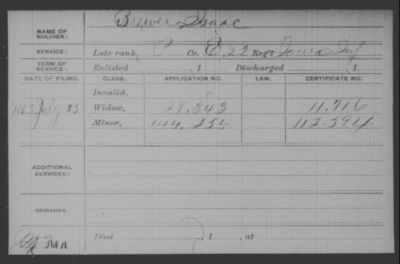 NAME OF SOLDIER: Brewer Isaac
SERVICE: Late rank, P Co. E, 22 Reg't Iowa Inf
TERM OF SERVICE: Enlisted , 1 Discharged , 1
DATE OF FILING. CLASS. APPLICATION NO. LAW. CERTIFICATE NO.
Invalid,
1863 July 25 Widow, 28,343 11,716
Minor, 144,254 112,394
ADDITIONAL SERVICES:
REMARKS:
Died , 1 , at